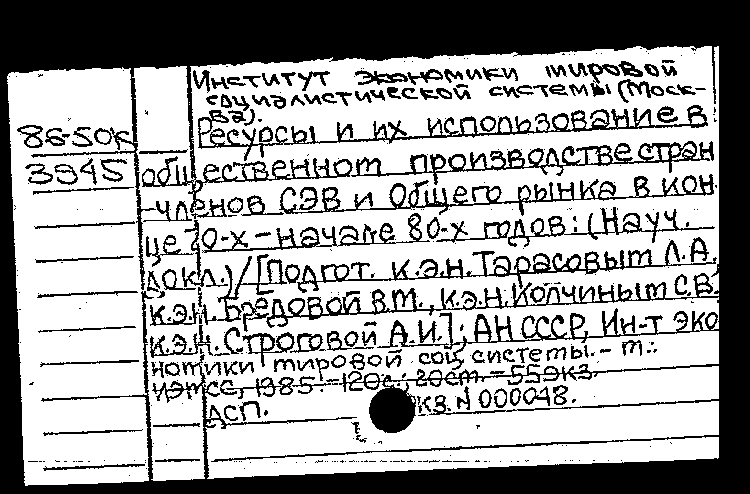 Институт экономики мировой
социалистической системы (Моск-
ва).
86-50К Ресурсы и их использование в
3945 общественном производстве стран
-членов СЭВ и Общего рынка в кон
це 70-х – начале 80-х годов: (Науч.
докл.) / [Подгот. к.э.н. Тарасовым Л.А.
к.э.н. Бредовой В.М., к.э.н. Колчиным С.В.
к.э.н. Строговой А.И.]; АН СССР, Ин-т эко
номики мировой соц. системы. – М.:
ИЭМСС, 1985. – 120с.; 20см. – 55экз.
ДСП. кз. N 000048.